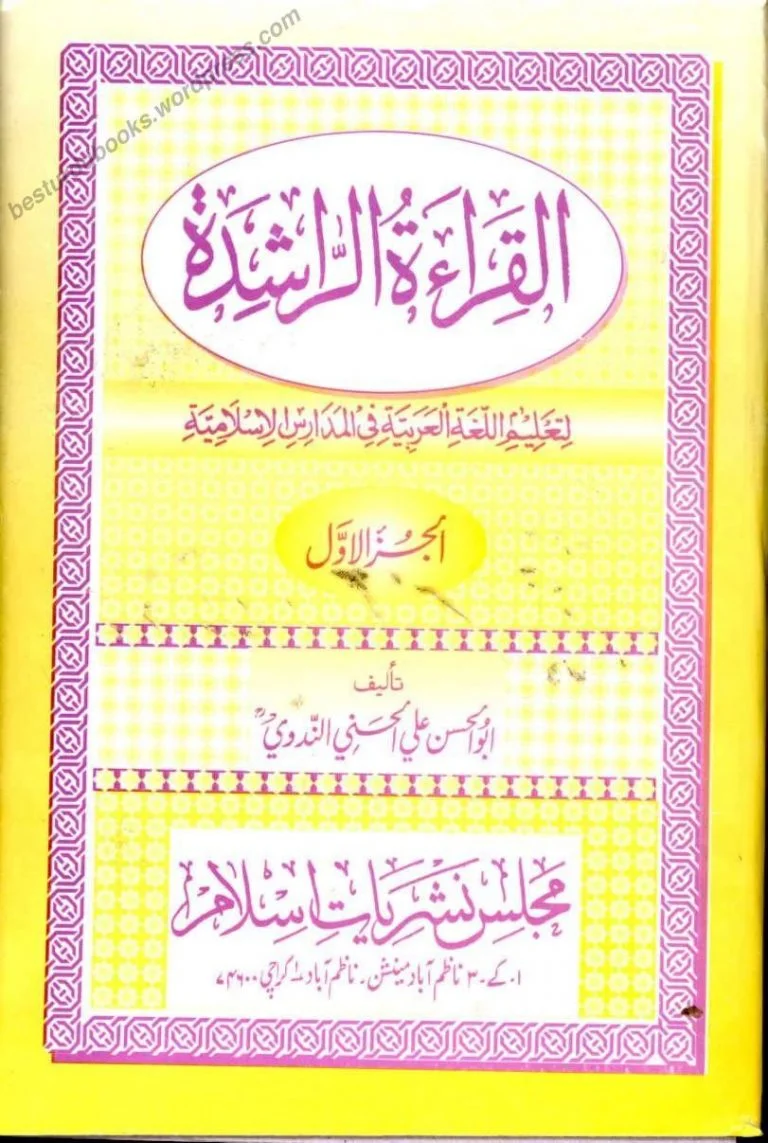 besturdubooks.wordpress.com
القِرَاءَةُ الرَّاشِدَة
لِتَعْلِيْمِ اللُّغَةِ الْعَرَبِيَّةِ فِي الْمَدَارِسِ الْاِسْلَامِيَّةِ
الجُزءُ الاوَّل
تأليف
ابُو الحسن علي الحَسَني النَّدوي ؒ
مَجلِس نَشرِیَاتِ اِسْلَام
۱۔کے۔۳ ناظم آباد مینشن۔ ناظم آباد ۱ کراچی ۷۴۶۰۰